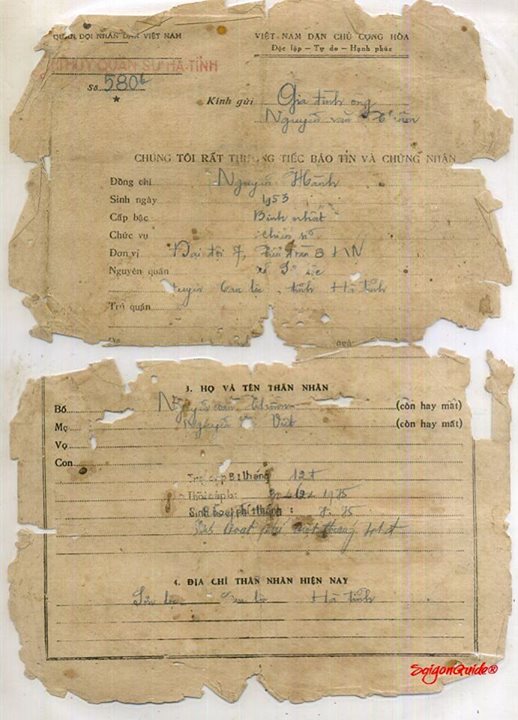 QUÂN ĐỘI NHÂN DÂN VIỆT NAM
VIỆT-NAM DÂN CHỦ CỘNG HÒA
Độc lập - Tự do - Hạnh phúc
HUY QUÂN SỰ HÀ-TĨNH
Số 580b
Kính gửi Gia đình ông
Nguyễn văn
CHÚNG TÔI RẤT THƯƠNG TIẾC BÁO TIN VÀ CHỨNG NHẬN
Đồng chí Nguyễn Hành
Sinh ngày 1953
Cấp bậc Binh nhất
Chức vụ chiến sĩ
Đơn vị Đại đội 7,
Nguyên quán xã
huyện Can lộc, tỉnh Hà tĩnh
Trú quán
3. HỌ VÀ TÊN THÂN NHÂN
Bố Nguyễn văn (còn hay mất)
Mẹ Nguyễn (còn hay mất)
Vợ
Con
Trợ cấp tháng 12t
1975
Sinh hoạt phí tháng 75
hoạt phí một tháng
4. ĐỊA CHỈ THÂN NHÂN HIỆN NAY
lộc Can lộc Hà tĩnh
SaigonGuide®